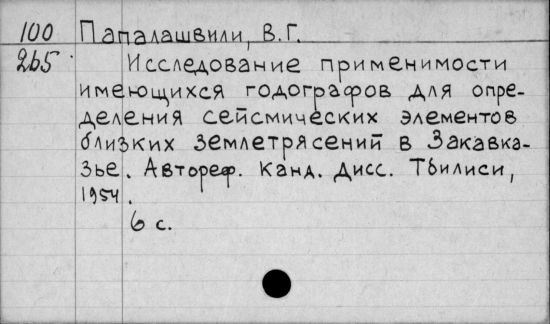 100 Папалашвили, В.Г.
265 Исследование применимости
имеющихся годографов для опре-
деления сейсмических элементов
близких землетрясений в Закавка-
зье. Автореф. канд. дисс. Тбилиси,
1954.
6 с.